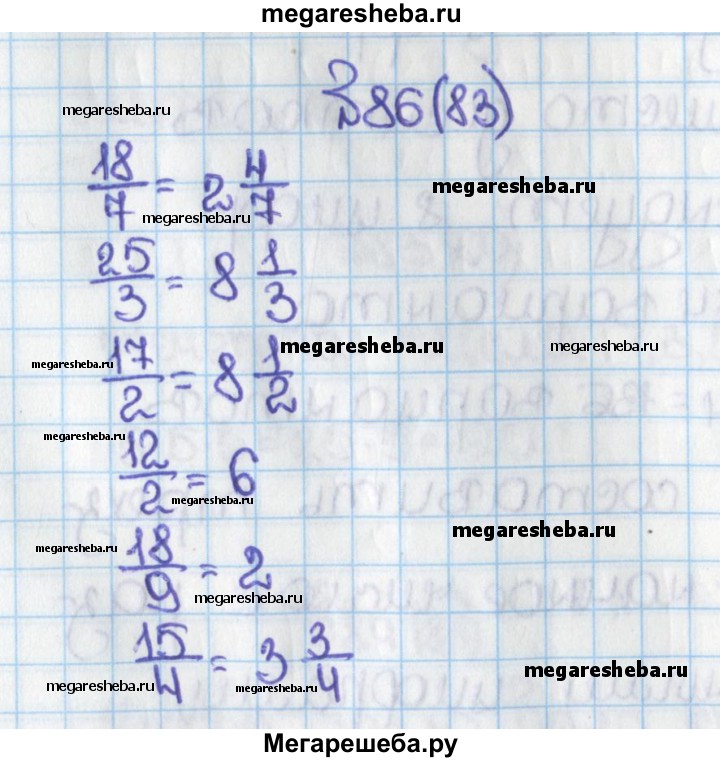 megaresheba.ru
№86(83)
megaresheba.ru
18/7 = 2 4/7
megaresheba.ru
megaresheba.ru
25/3 = 8 1/3
megaresheba.ru
megaresheba.ru
megaresheba.ru
17/2 = 8 1/2
megaresheba.ru
12/2 = 6
megaresheba.ru
megaresheba.ru
megaresheba.ru
18/9 = 2
megaresheba.ru
15/4 = 3 3/4
megaresheba.ru
megaresheba.ru
megaresheba.ru
Мегарешеба.ру